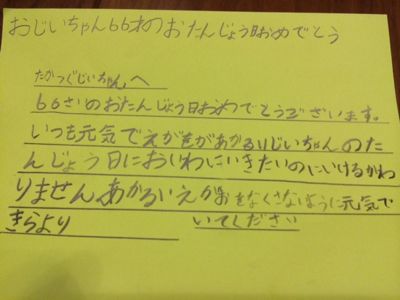 おじいちゃん66才のおたんじょう日おめでとう
たかつぐじいちゃんへ
66さいのおたんじょう日おめでとうございます。
いつも元気でえがをがあかるいじいちゃんのた
んじょう日においわにいきたいのにいけるかわ
りませんあかるいえがおをなくさないように元気で
きらより
いてください